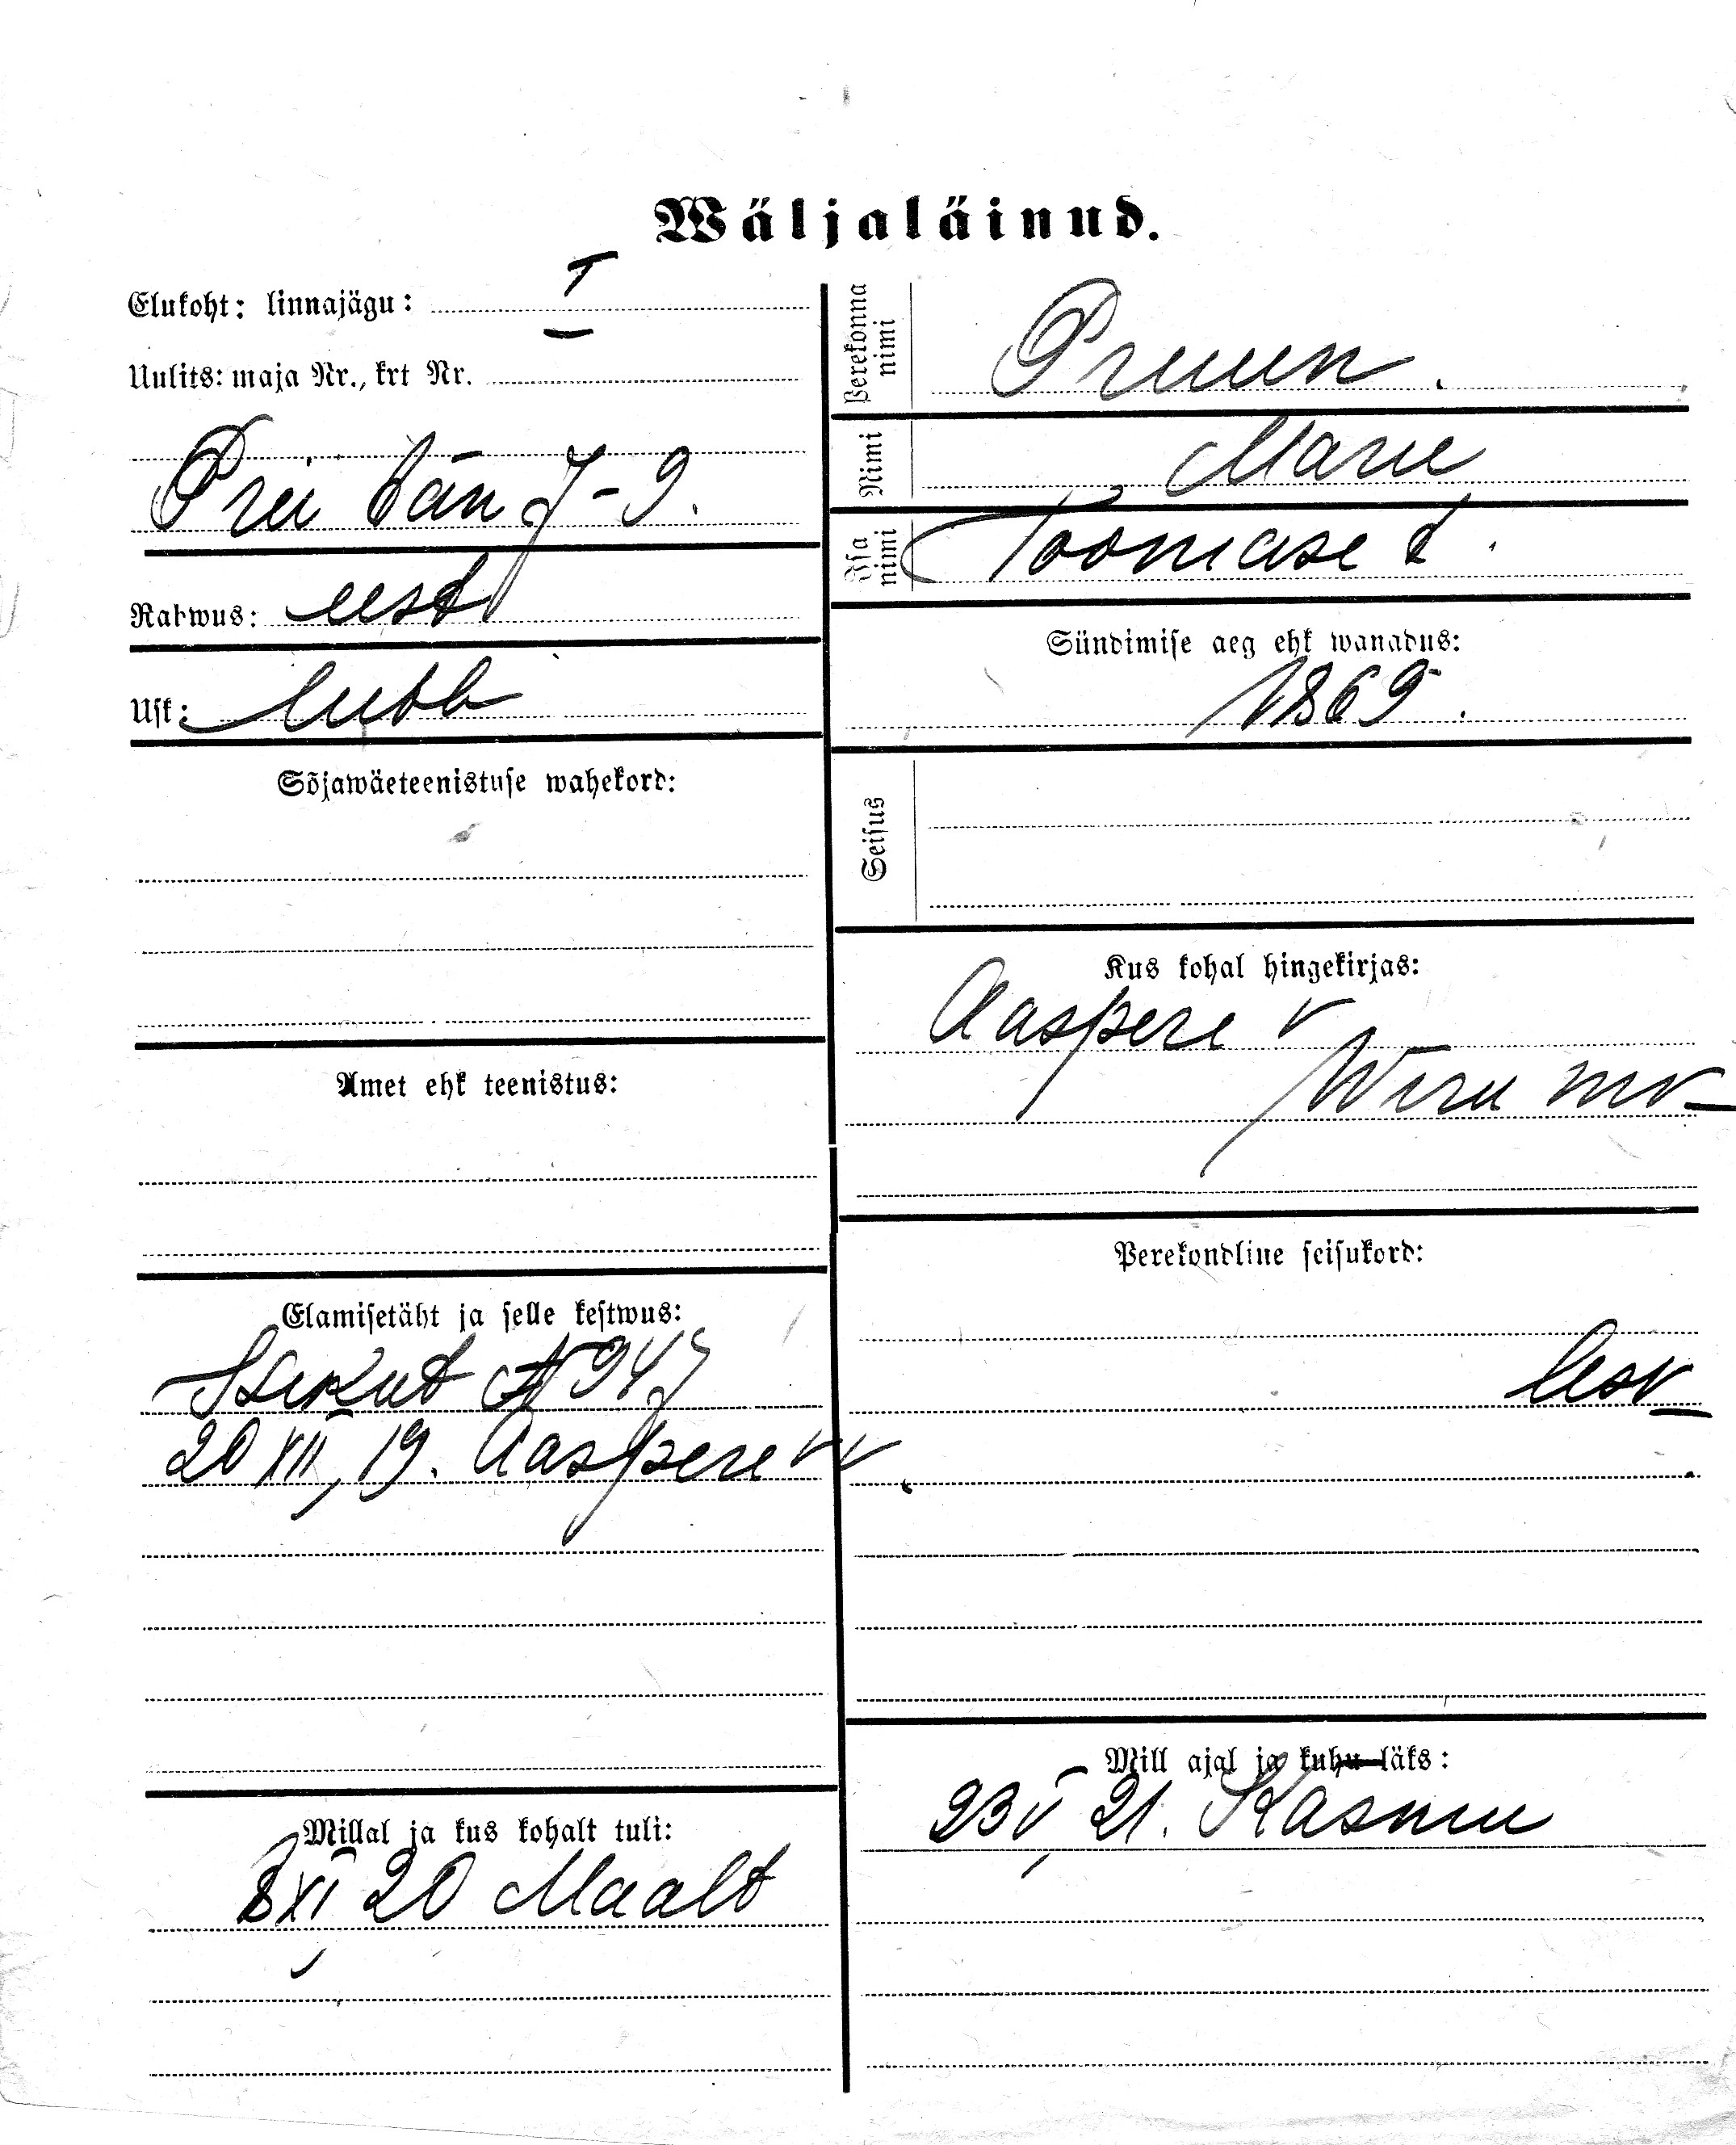 Wäljaläinud.
Elukoht: linnajägu: I
Uulits: maja Nr., krt Nr.
Prei tän 7-9.
Rahwus: eest
Usk: lutt
Sõjawäeteenistuse wahekord:
Amet ehk teenistus:
Elamisetäht ja selle kestwus:
Isikut № 947
20 XII, 19. Aaspere vv.
Millal ja kus kohalt tuli:
8 XI 20 Maalt
Perekonna nimi
Pruun.
Nimi
Marie
Isa nimi
Toomase t.
Sündimise aeg ehk wanadus:
1869.
Seisus
Kus kohal hingekirjas:
Aaspere v
Wiru mk
Perekondline seisukord:
lesk
Mill ajal ja kuhu läks:
23 V 21. Käsmu